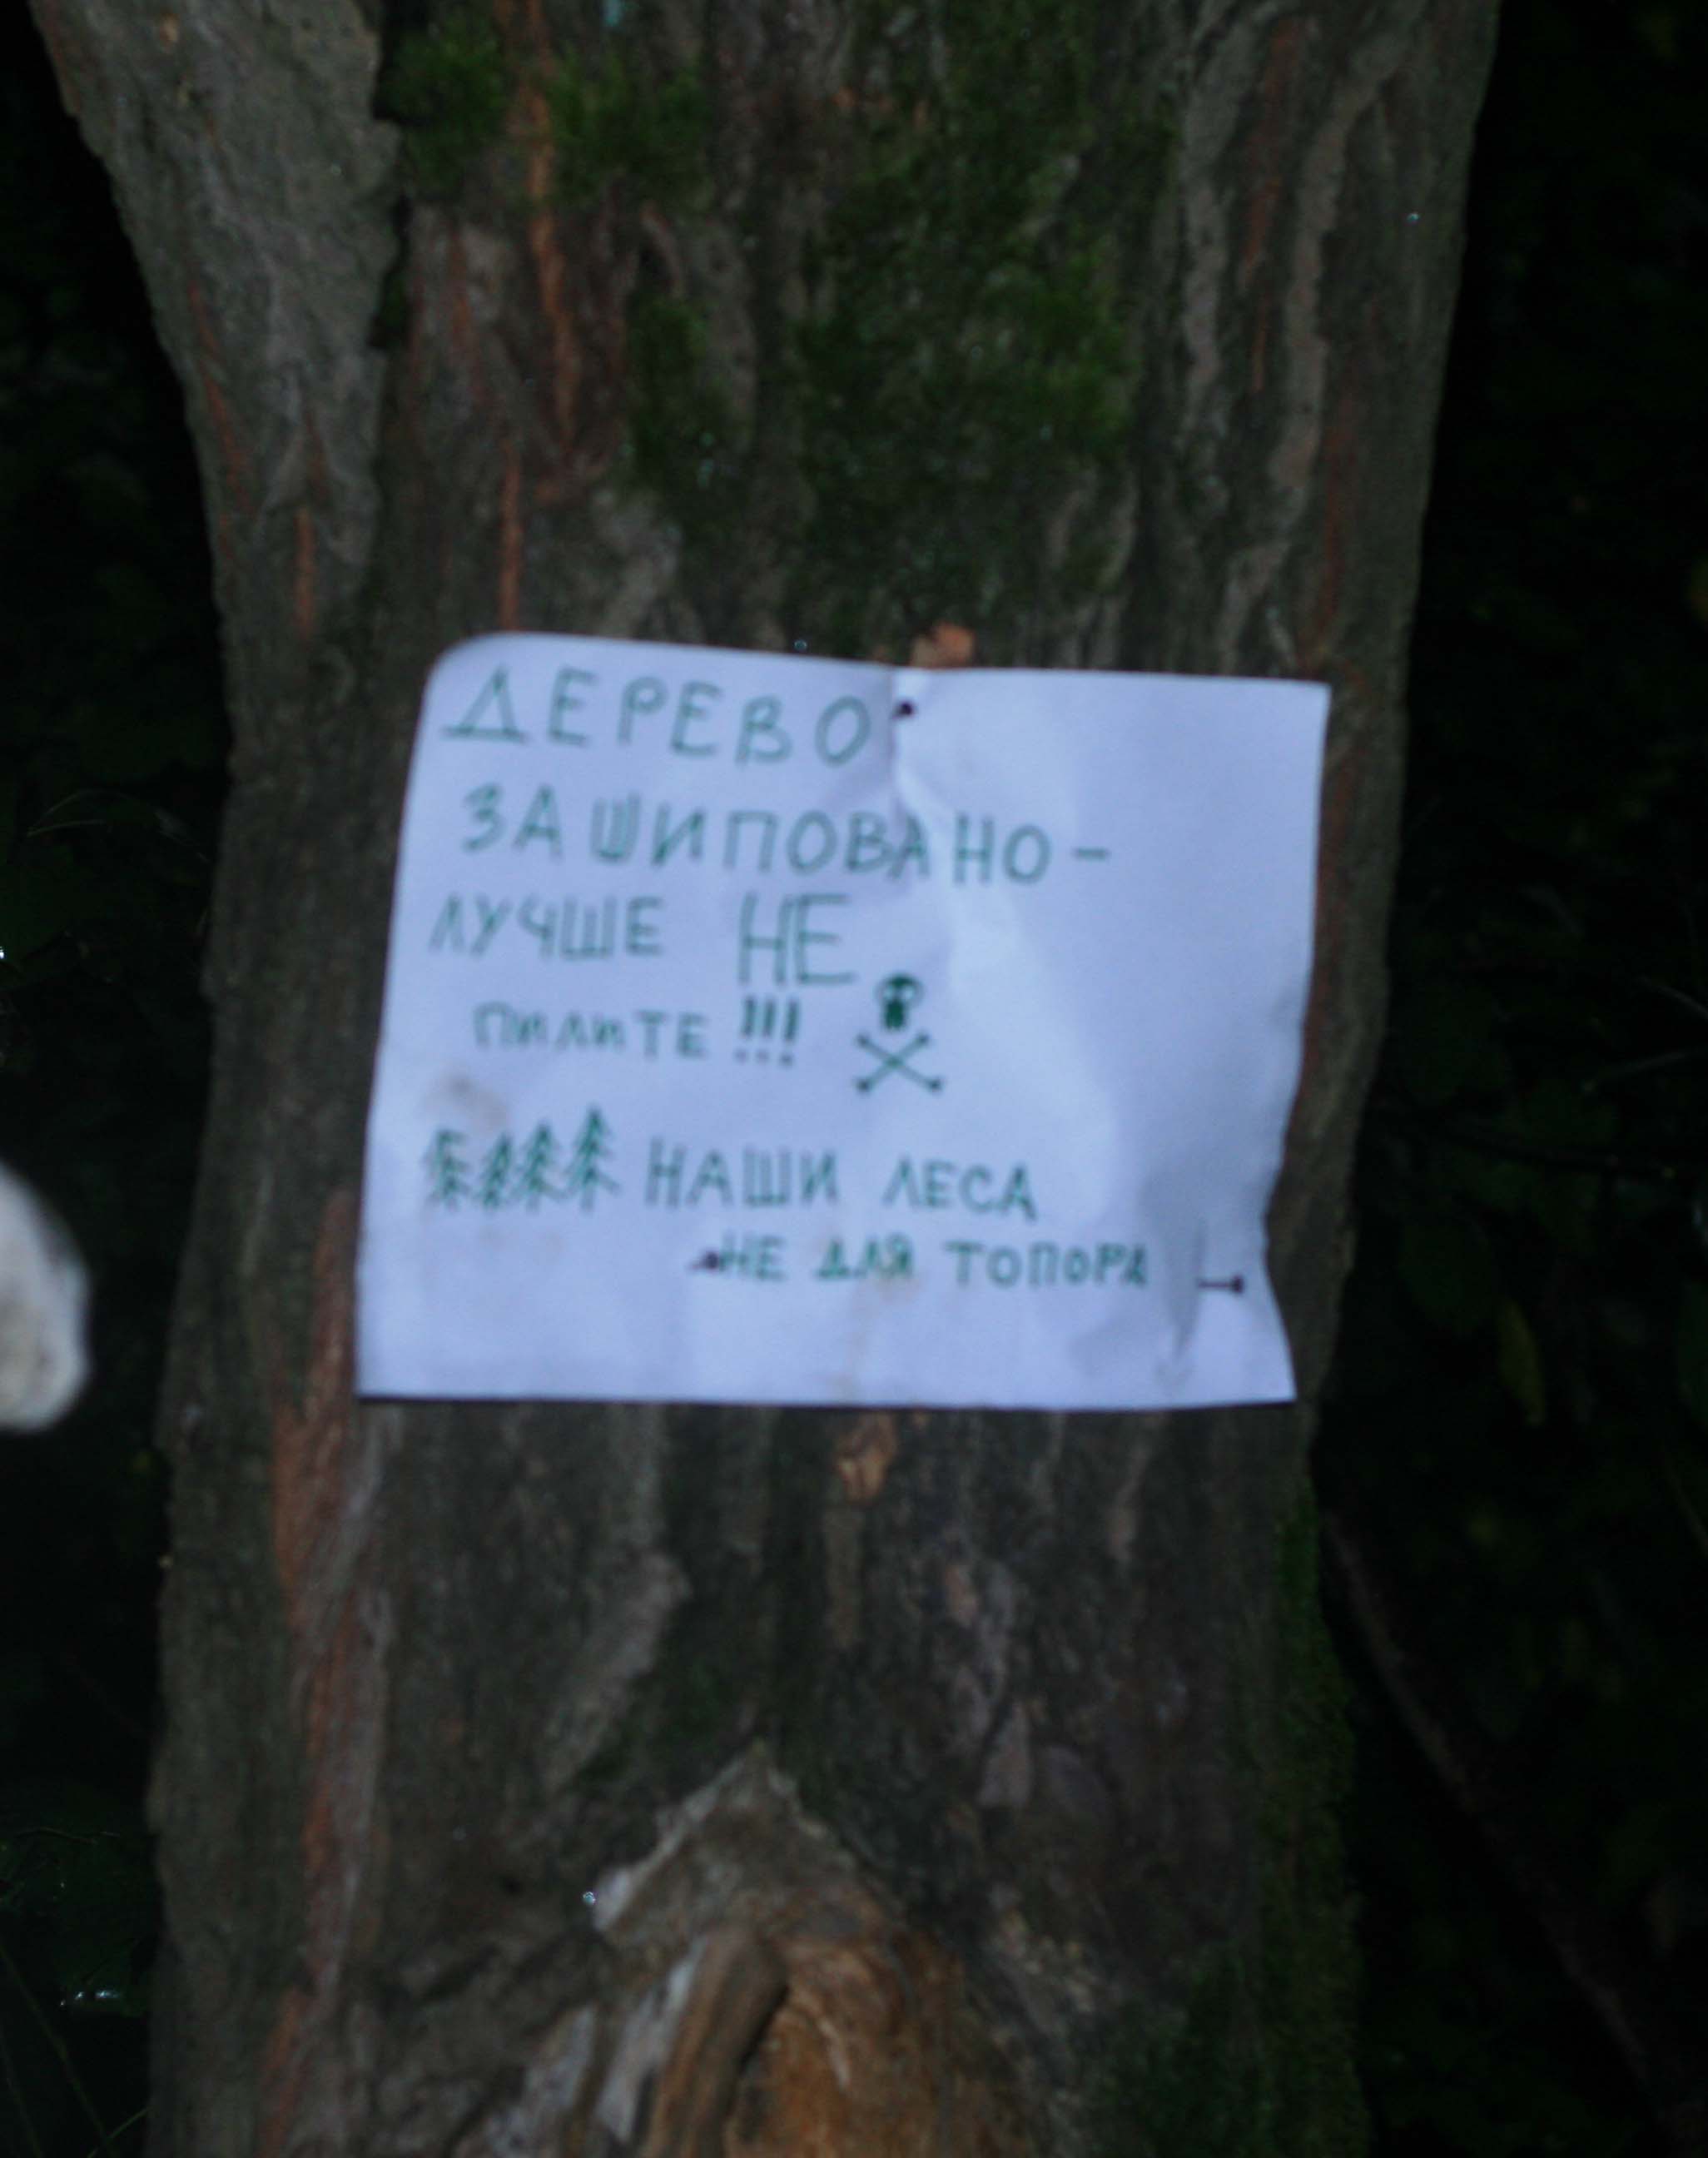 ДЕРЕВО
ЗАШИПОВАНО-
ЛУЧШЕ НЕ
ПИЛИТЕ!!!
НАШИ ЛЕСА
НЕ ДЛЯ ТОПОРА